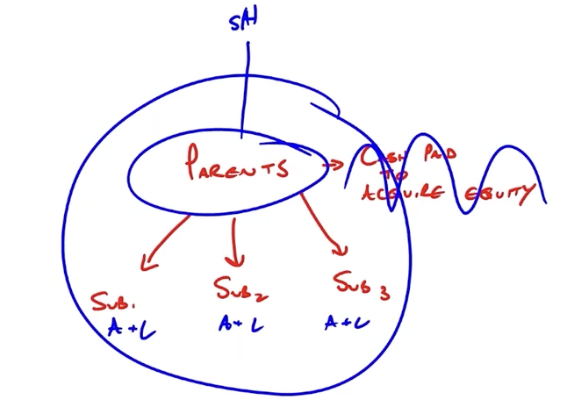 SH
PARENTS
CASH PAID
TO
ACQUIRE EQUITY
SUB1
A+L
SUB2
A+L
SUB3
A+L